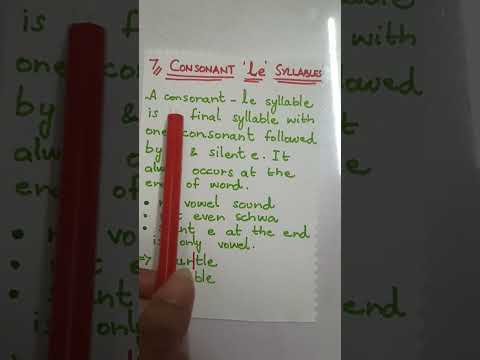 7 CONSONANT 'le' SYLLABLES
-A consonant - le syllable
is final syllable with
one consonant followed
by & silent e. It
occurs at the
of word.
• vowel sound
• even schwa
• e at the end
is only vowel.
=>